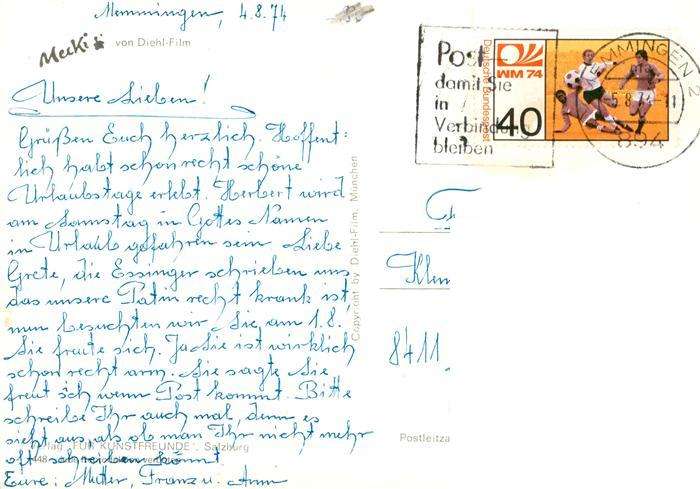 Memmingen, 4.8.74
Mecki
von Diehl-Film
Unsere Lieben!
Grüßen Euch herzlich. Hoffent:
lich habt schon recht schöne
Urlaubstage erlebt. Herbert wird
am Samstag in Gottes Namen
in Urlaub gefahren sein. Liebe
Grete, die Essinger schrieben uns
das unsere Patin recht krank ist,
nun besuchten wir Sie am 1.8.
Sie freute sich. Ja Sie ist wirklich
schon recht arm. Sie sagte Sie
freut sich wenn Post kommt. Bitte
schreibe Ihr auch mal, denn es
sieht aus, als ob man Ihr nicht mehr
oft schreiben könnt.
Eure: Mutter, Franz u. Anni
Verlag "FÜR KUNSTFREUNDE", Salzburg
Copyright by Diehl-Film, München
Post
damit Sie
in
Verbindung
bleiben
Deutsche Bundespost
WM 74
40
MEMMINGEN 2
-5.8.74-11
894
Klin
8411
Postleitza